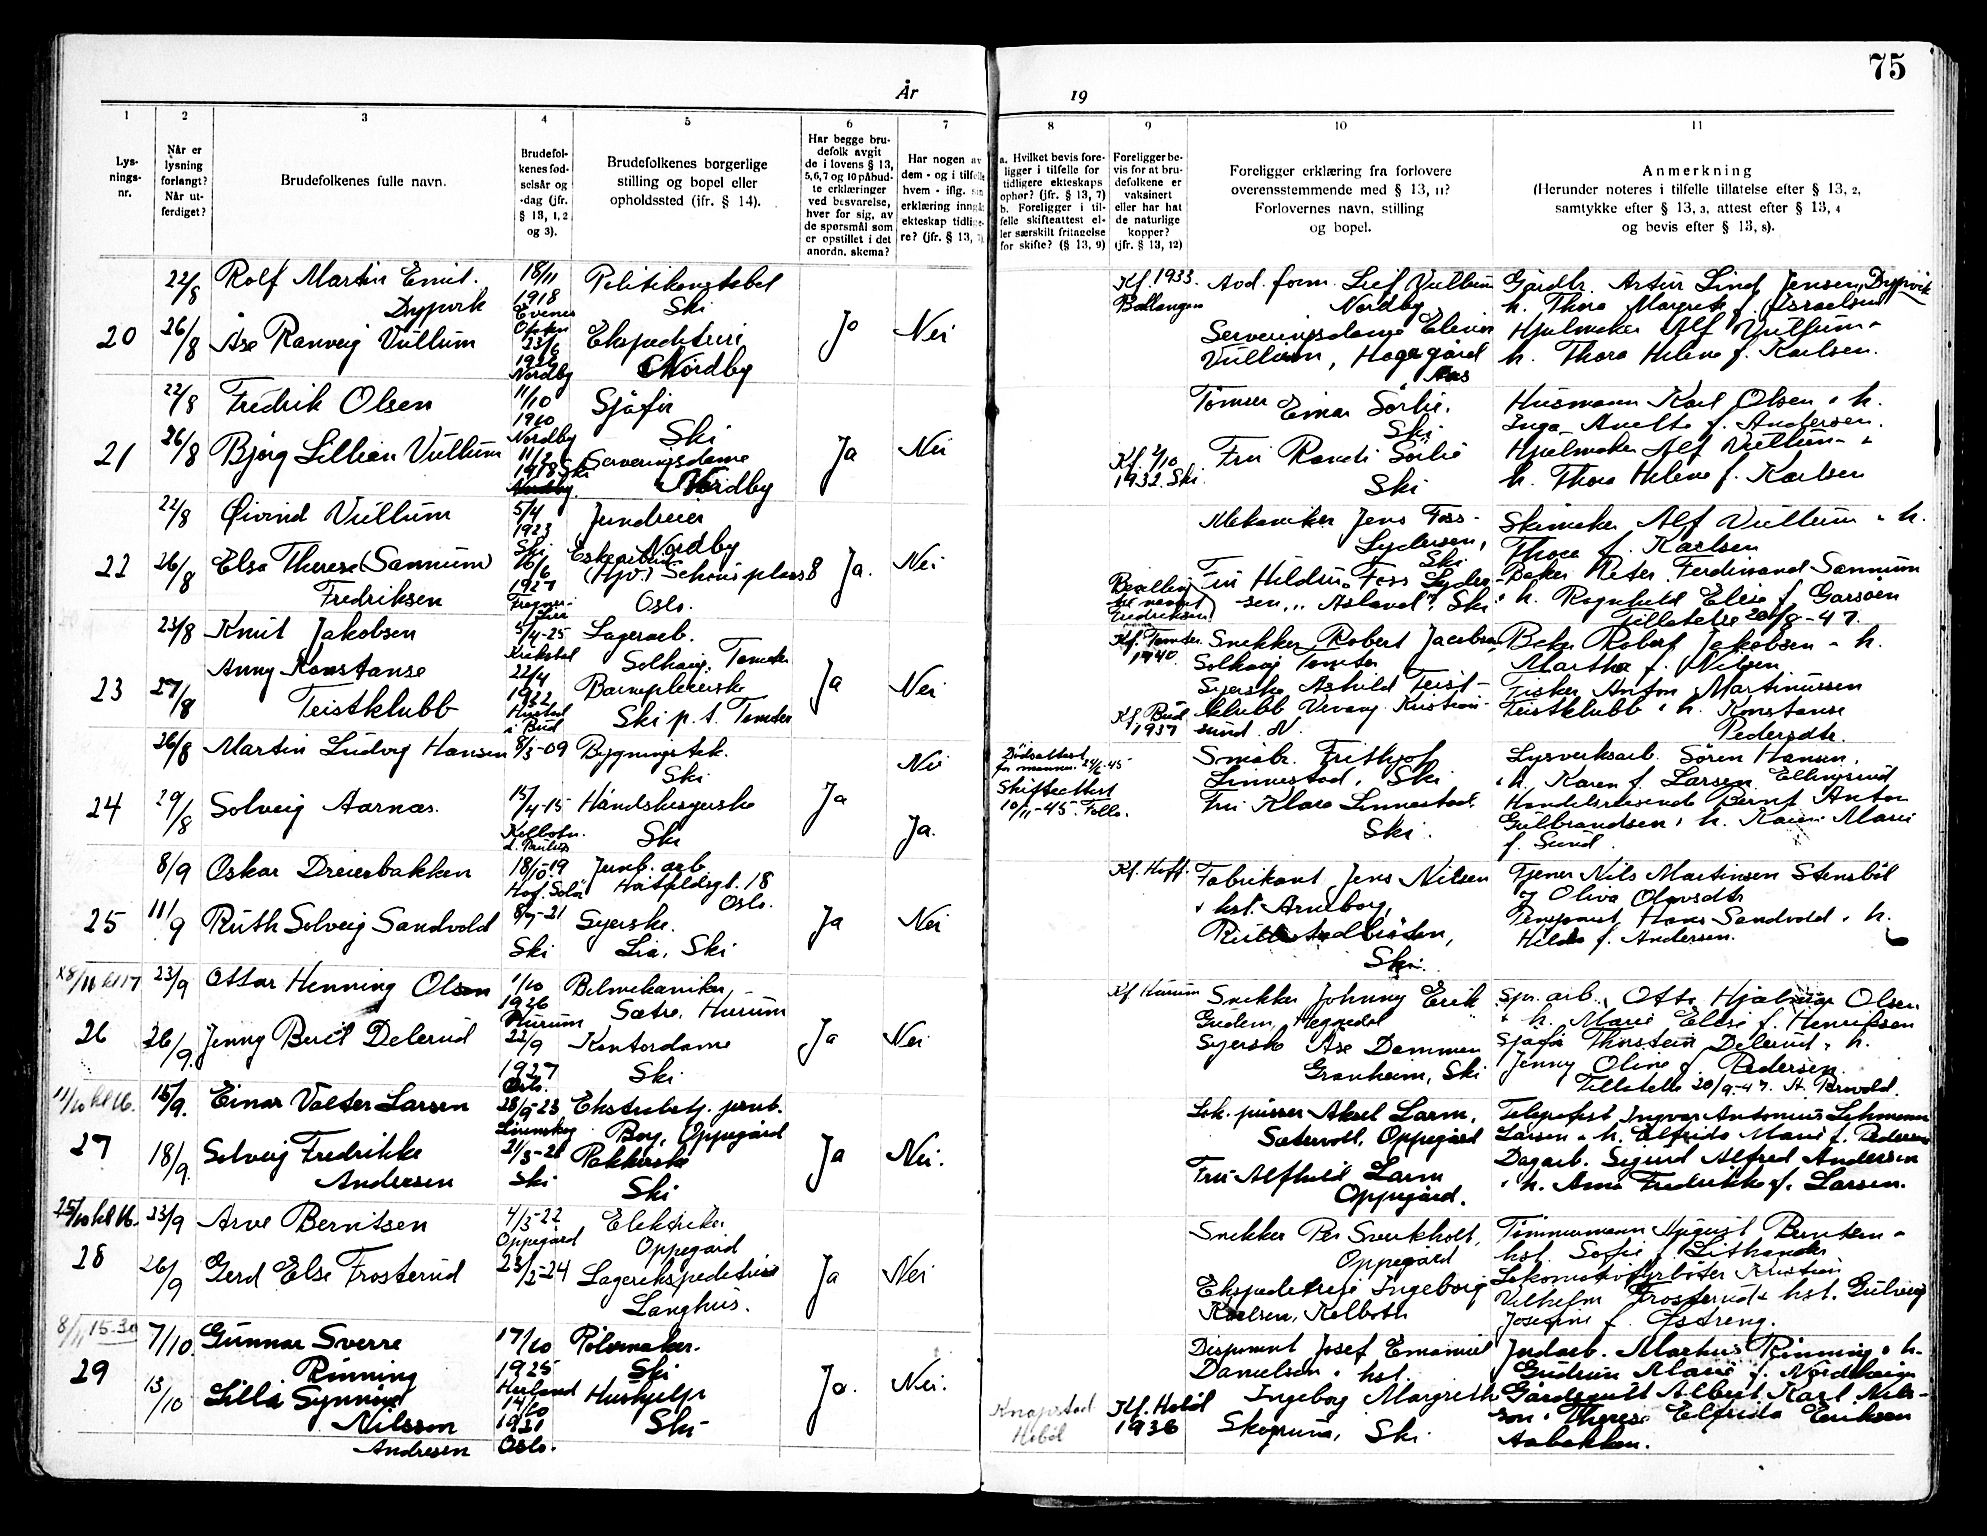 75
År 19
1 2 3 4 5 6 7 8 9 10 11
Lys-
nings-
nr.
Når er
lysning
forlangt?
Når ut-
ferdiget?
Brudefolkenes fulle navn.
Brudefol-
kenes fød-
selsår og
-dag (jfr.
§ 13, 1, 2
og 3).
Brudefolkenes borgerlige
stilling og bopel eller
opholdssted (ifr. § 14).
Har begge bru-
defolk avgit
de i lovens § 13,
5, 6, 7 og 10 påbud-
te erklæringer
ved besvarelse,
hver for sig, av
de spørsmål som
er opstillet i det
anordn. skema?
Har nogen av
dem - og i tilfelle
hvem - iflg. sin
erklæring inngåt
ekteskap tidlige-
re? (jfr. § 13, 7).
a. Hvilket bevis fore-
ligger i tilfelle for
tidligere ekteskaps
ophør? (jfr. § 13, 7)
b. Foreligger i til-
felle skifteattest el-
ler særskilt fritagelse
for skifte? (§ 13, 9)
Foreligger be-
vis for at bru-
defolkene er
vaksinert
eller har hat
de naturlige
kopper?
(jfr. § 13, 12)
Foreligger erklæring fra forlovere
overensstemmende med § 13, 11?
Forlovernes navn, stilling
og bopel.
Anmerkning
(Herunder noteres i tilfelle tillatelse efter § 13, 2,
samtykke efter § 13, 3, attest efter § 13, 4
og bevis efter § 13, 8).
20
22/8
26/8
Rolf Martin Emil
Dypvik
Åse Ranveig Vullum
18/11
1918
Evenes
Ofoten
23/6
1926
Nordby
Politikonstabel
Ski
Ekspeditrise
Nordby
Ja
Nei
Kf. 1933
Ballangen
Avd. form. Leif Vullum
Nordby
Serveringsdame
Vullum, Hagegård
Aas
Gårdbr. Artur Lind Jensen Dypvik
h. Thora Margrete f. Israelsen
Hjulmaker Alf Vullum
h. Thora Helene f. Karlsen.
21
22/8
26/8
Fredrik Olsen
Bjørg Lillian Vullum
11/10
1910
Nordby
11/2
1918 Ski
Nordby.
Sjåfør
Ski
Serveringsdame
Nordby
Ja
Nei
Kf. 2/10
1932. Ski.
Tømrer Einar Sørlie.
Ski
Fru Randi Sørlie
Ski
Husmann Karl Olsen. h.
Inga f. Andersen.
Hjulmaker Alf Vullum
h. Thora Helene f. Karlsen
22
22/8
26/8
Øivind Vullum
Elsa Therese (Sannum)
Fredriksen
5/4
1923
Ski
16/6
1927
Jerndreier
Nordby
(Hjv.) Schous plass 8
Oslo.
Ja.
Nei
Bevilling
til navnet
Fredriksen
Mekaniker Jens Foss-
Lydersen,
Ski
Fru Hildur Foss Lyder-
sen, "Asland", Ski
Skimaker Alf Vullum h.
Thora f. Karlsen
Baker Peter Ferdinand Sannum
h. Ragnhild Elise f. Garsøen
Tillatelse 20/8-47.
23
23/8
27/8
Knut Jakobsen
Anny Konstanse
Teistklubb
5/4-25
Kråkstad
22/4
1922
Hustad
i Bud
Lagerarb.
Solhaug, Tomter
Barnepleierske
Ski p.t. Tomter
Ja
Nei
Kf. Tomter
1940.
Kf. Bud
1937
Snekker Robert Jacobsen
Solhaug Tomter
Syerske Astrid Teist-
klubb Vevang Kristian-
sund N.
Robert Jakobsen - h.
Martha f. Nilsen
Fisker Anton Martinussen
Teistklubb h. Konstanse
Pedersdtr.
24
26/8
29/8
Martin Ludvig Hansen
Solveig Aarnæs.
8/3-09
15/4-15
Kolbotn.
Bygningstek.
Ski
Håndskesyerske
Ski
Ja
Nei
Ja.
Dødsattest
for mannen 24/6-45
Skifteattest
10/11-45. Follo.
Småbr. Frithjof
Linnestad, Ski
Fru Klara Linnestad.
Ski.
Lysverksarb. Søren Hansen.
h. Karen f. Larsen Ellingsrud
Handelsreisende Bernt Anton
Gulbrandsen h. Karen Marie
f. Sund.
25
8/9
11/9
Oskar Dreierbakken
Ruth Solveig Sandvold
18/10-19
Hof. Solør
8/7-21
Ski
Jernb. arb.
Hatfeldsgt. 18
Oslo.
Syerske.
Lia, Ski
Ja
Nei
Kf. Hoff.
Fabrikant Jens Nilsen
hst. Arneborg,
Ski.
Nils Martinsen Stensbøl
og Oliva Olavsdtr
Pensjonist Hans Sandvold h.
Hilda f. Andersen.
x8/11 kl 17
26
23/9
26/9.
Ottar Henning Olsen
Jenny Buil Delerud
1/10
1926
Hurum
22/9
1927
Oslo.
Bilmekaniker
Sætre, Hurum
Kontordame
Ski
Ja
Nei
Kf Hurum
Snekker Johnny Erik
Gudem, Heggedal
Syerske Åse Dammen
Granheim, Ski
Spr. arb. Otto Hjalmar Olsen
h. Marie Elise f. Henriksen
Sjåfør Thorstein Delerud h.
Jenny Oline f. Pedersen.
Tillatelse 20/9-47.
11/10 kl 16.
27
15/9.
18/9.
Einar Valter Larsen
Solveig Fredrikke
Andersen
28/9-23
Lørenskog
21/3-21
Ski
Ekstrabetj. jernb.
Berg, Oppegård
Pakkerske
Ski
Ja
Nei.
Lok. pusser Aksel Larm,
Sætervoll, Oppegård
Fru Alfhild Larm
Oppegård.
Telegrafist Ingvar Antonius Lehmann
Larsen h. Elfrida Marie f. Pedersen
Dagarb. Sigurd Alfred Andersen
h. Anna Fredrikke f. Larsen.
25/10 kl 16.
28
23/9
26/9
Arve Berntsen
Gerd Else Frosterud
4/3-22
Oppegård
23/2-24
Elektriker
Oppegård
Lagerekspeditrise
Langhus.
Ja
Nei
Snekker Per Sverkholt,
Oppegård
Ekspeditrise Ingeborg
Karlsen, Kolbotn
Tømmermann August Berntsen
hst. Sofie f. Lithander
Lokomotivfyrbøter Kristian
Vilhelm Frosterud hst. Gulveig
Josefine f. Østreng.
8/11 15.30
29
7/10.
13/10
Gunnar Sverre
Rinning
Lilly Synnøve
Nilsson
Andresen
17/10
1925
14/10
1921
Oslo.
Rørmaker.
Ski
Hushjelp
Ski
Ja.
Nei.
Knapstad
Hobøl
Kf. Hobøl
1936
Disponent Josef Emanuel
Danielsen hst.
Ingeborg Margrethe
Skogrund, Ski
Jordarb. Markus Rinning h.
Gudrun Marie f.
Gårdsgutt Albert Karl Nils-
son Therese Elfrida Eriksen
Aabakken.